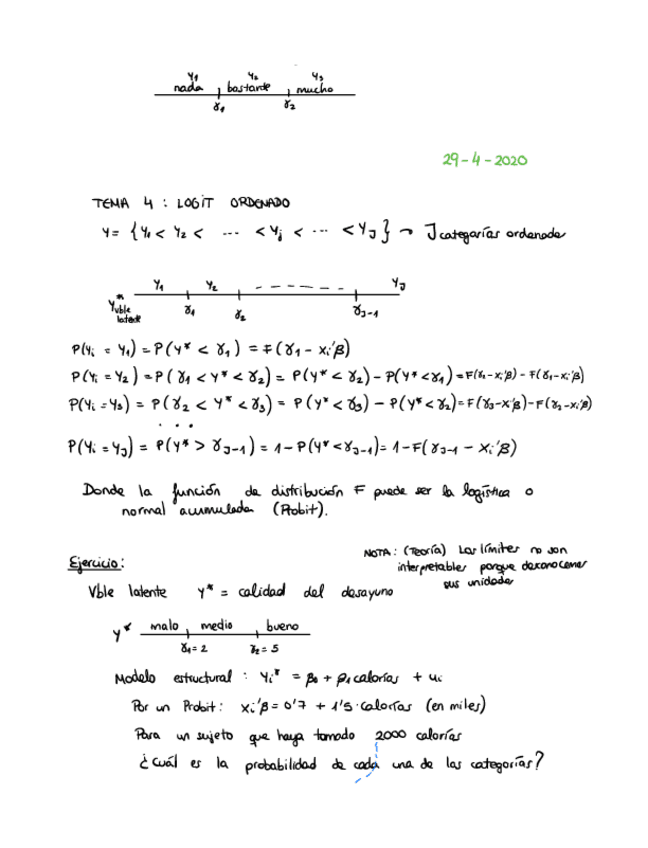 y₁ y₂ y₃
nada bastante mucho
γ₁ γ₂
29-4-2020
TEMA 4 : LOGIT ORDENADO
y = {y₁ < y₂ < ... < yⱼ < ... < y_J} → J categorías ordenada
y₁ y₂ y_J
y* vble latente γ₁ γ₂ γ_J-1
P(yᵢ = y₁) = P(y* < γ₁) = F(γ₁ - xᵢ'β)
P(yᵢ = y₂) = P(γ₁ < y* < γ₂) = P(y* < γ₂) - P(y* < γ₁) = F(γ₂ - xᵢ'β) - F(γ₁ - xᵢ'β)
P(yᵢ = y₃) = P(γ₂ < y* < γ₃) = P(y* < γ₃) - P(y* < γ₂) = F(γ₃ - xᵢ'β) - F(γ₂ - xᵢ'β)
...
P(yᵢ = y_J) = P(y* > γ_J-1) = 1 - P(y* < γ_J-1) = 1 - F(γ_J-1 - xᵢ'β)
Donde la función de distribución F puede ser la logística o
normal acumulada (Probit).
NOTA: (Teoría) Los límites no son
interpretables porque desconocemos
sus unidades
Ejercicio:
Vble latente y* = calidad del desayuno
y* malo medio bueno
γ₁ = 2 γ₂ = 5
Modelo estructural : yᵢ* = β₀ + β₁ calorías + uᵢ
Por un Probit: xᵢ'β = 0'7 + 1'5 · calorías (en miles)
Para un sujeto que haya tomado 2000 calorías
¿Cuál es la probabilidad de cada una de las categorías?